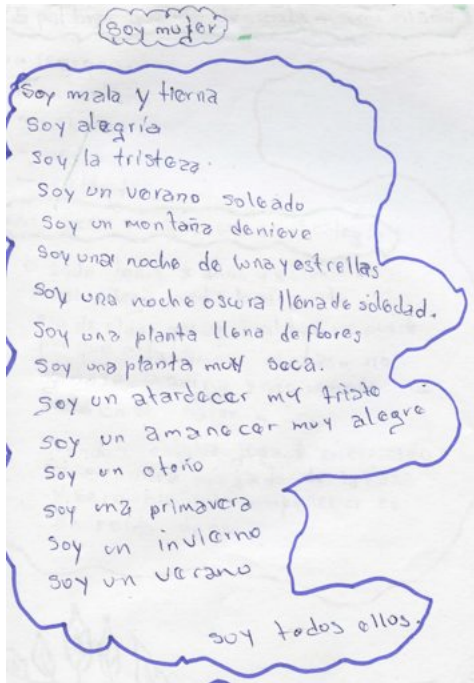 Soy mujer
Soy mala y tierna
Soy alegría
Soy la tristeza.
Soy un verano soleado
Soy un montaña denieve
Soy una noche de luna y estrellas
Soy una noche oscura llena de soledad.
Soy una planta llena de flores
Soy una planta muy seca.
Soy un atardecer muy triste
Soy un amanecer muy alegre
Soy un otoño
Soy una primavera
Soy un invierno
Soy un verano
soy todos ellos.